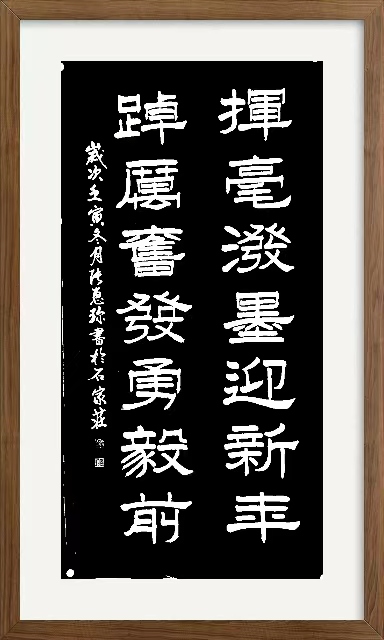 揮毫潑墨迎新年
踔厲奮發勇毅前
歲次壬寅冬月陸惠珍書於石家莊